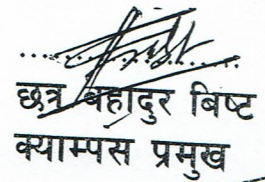 छत्र बहादुर बिष्ट
क्याम्पस प्रमुख